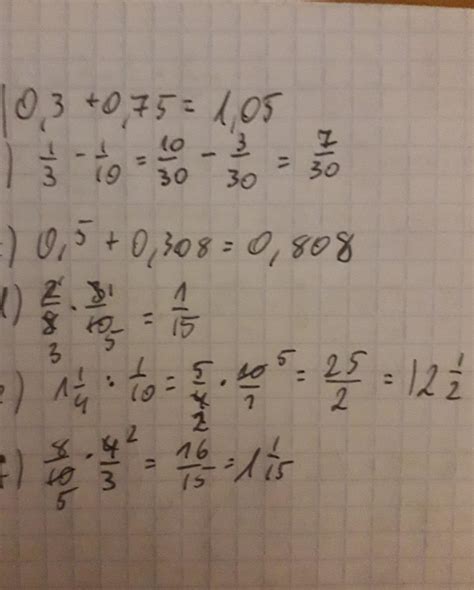 0,3 + 0,75 = 1,05
) 1/3 - 1/10 = 10/30 - 3/30 = 7/30
) 0,5 + 0,308 = 0,808
d) 2/8 · 8/10 = 1/15
1 1/4 : 1/10 = 5/4 · 10/1 = 25/2 = 12 1/2
) 8/10 · 4/3 = 16/15 = 1 1/15